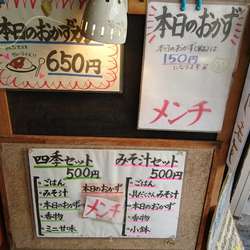 本日のおかず
650円
本日のおかず
本日のおかず(単品)は
150円
メンチ
四季セット
500円
・ごはん
・みそ汁
・本日のおかず
・香物
・ミニ甘味
本日のおかず
メンチ
みそ汁セット
500円
・ごはん
・具だくさんみそ汁
・本日のおかず
・香物
・小鉢